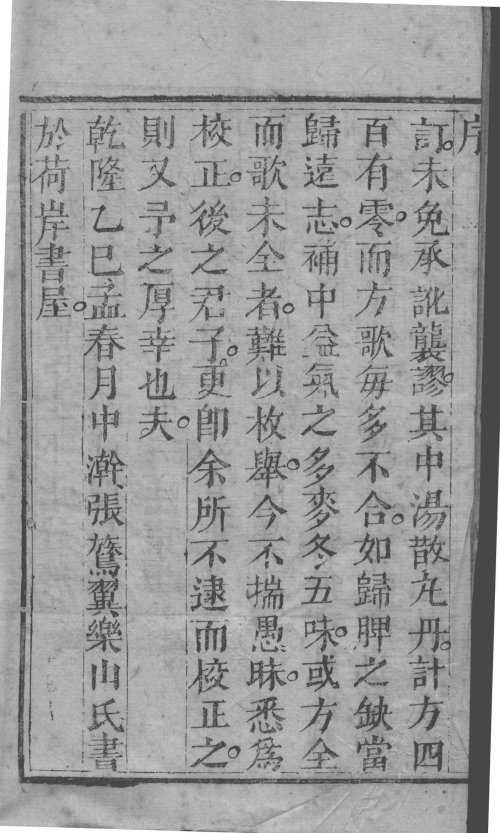 序
訂未免承訛襲謬其中湯散丸丹計方四
百有零而方歌每多不合如歸脾之缺當
歸遠志補中益氣之多麥冬五味或方全
而歌未全者難以枚舉今不揣愚昧悉爲
校正後之君子更卽余所不逮而校正之
則又予之厚幸也夫
乾隆乙巳孟春月中澣張鷟翼樂山氏書
於荷岸書屋